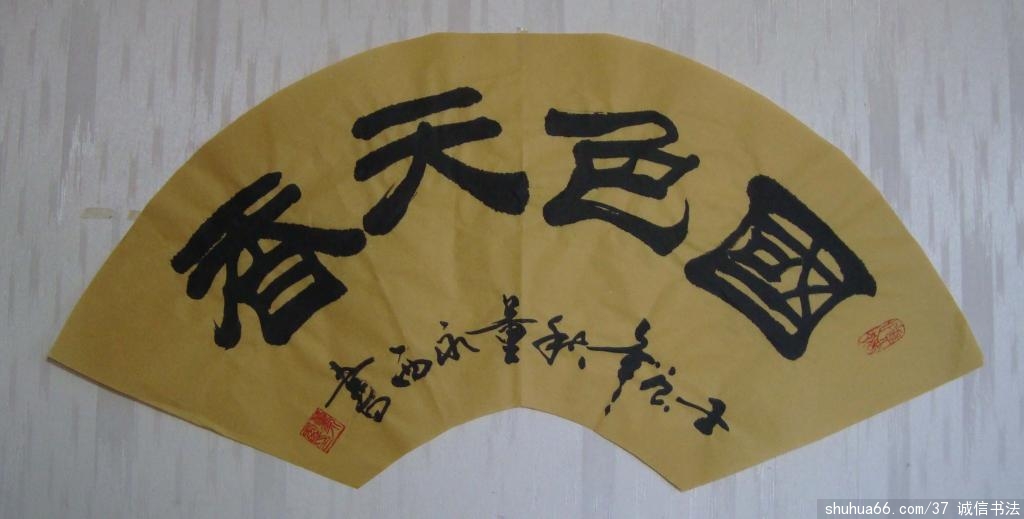 國色天香
壬辰年秋董永西書
shuhua66.com/37 诚信书法